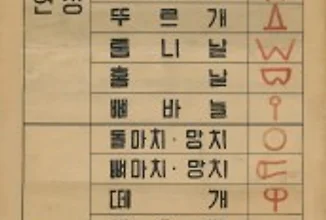 뚜르개
톱니날
홈날
뼈바늘
돌마치·망치
뼈마치·망치
떼개